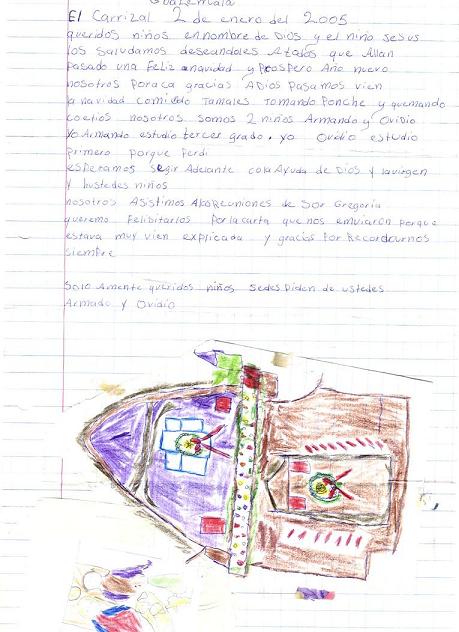 Guatemala
El Carrizal 2 de enero del 2005
queridos niños en nombre de Dios y el niño sesus
los saludamos deseandoles Atodos que Allan
pasado una Feliz anavidad y Prospero Año nuevo
nosotros Poraca gracias ADios Pasamos vien
a navidad comiedo Tamales Tomando Ponche y quemando
coetios nosotros somos 2 niños Armando y Ovidio
Yo Armando estudio tercer grado. yo Ovidio estudio
primero porque Perdi
esperamos segir Adelante cola Ayuda de Dios y lavirgen
y hustedes niños
nosotros Asistimos AlasReuniones de Sor Gregoria
queremo Felibitarlos Porlacarta que nos enviaron porque
estava muy vien explicada y gracias Por Recordarnos
siempre
Solo Amente queridos niños sedesPiden de ustedes
Armado y Ovidio